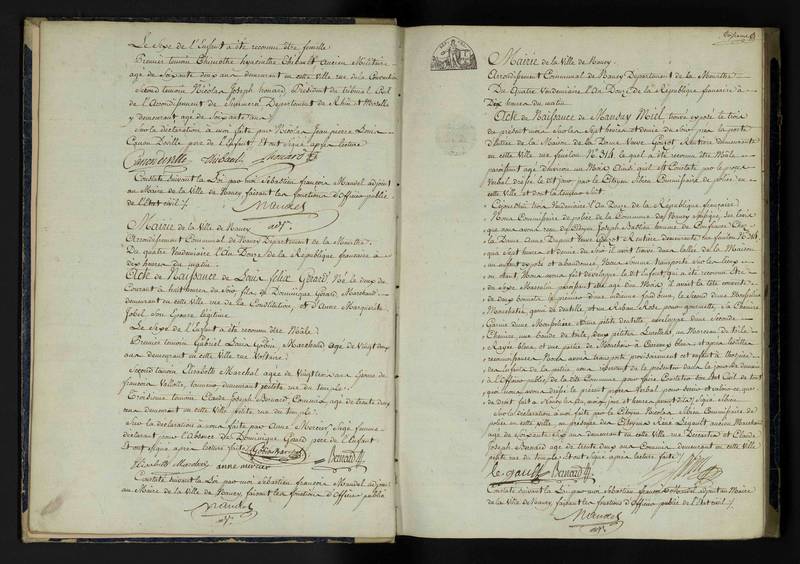 Le sexe de l'Enfant a été reconnu être femelle
Premier témoin Thimothé hyacinthe Thiebault Ancien Militaire
agé de soixante douze ans demeurant en cette Ville rue de la Convention
Second témoin Nicolas Joseph honard, Président du tribunal Civil
de l'Arrondissement de Département de Rhin et Moselle
y demeurant agé de soixante ans
Sur la déclaration à nous faite par Nicolas Jean pierre Louis
père de l'Enfant. Et ont signé après lecture
Thiebault honard
Constaté suivant la Loi par moi Sébastien françois Mandel adjoint
au Maire de la Ville de Nancy faisant les fonctions d'Officier public
de l'Etat civil ./.
Mandel
adjt.
Mairie de la Ville de Nancy
Arrondissement Communal de Nancy Département de la Meurthe.
Du quatre Vendemiaire l'An Douze de la République française à
dix heures du matin
Acte de Naissance de Louis félix Gérard Né le deux du
Courant à huit heures du soir fils de Dominique Gérard Marchand
demeurant en cette Ville rue de la Constitution, et d'Anne Marguerite
Jobel son Epouse légitime
Le sexe de l'Enfant a été reconnu être Mâle
Premier témoin Gabriel Louis Godin Marchand agé de Vingt deux
ans demeurant en cette Ville rue Voltaire
Second témoin Elisabeth Marchal agée de Vingt trois ans femme de
françois Vallotte, tourneur demeurant petite rue du temple
Troisième témoin Claude Joseph Bernard, Commis agé de trente deux
ans demeurant en cette Ville petite rue du temple.
Sur la déclaration à nous faite par Anne Mercier, Sage femme
déclarant pour l'Absence de Dominique Gérard père de l'Enfant
Et ont signé après lecture faite
Elisabeth Marchal anne mercier Bernard
Constaté suivant la Loi par moi Sébastien françois Mandel adjoint
au Maire de la Ville de Nancy faisant les fonctions d'Officier public
Mandel
adjt.
Naissance
Mairie de la Ville de Nancy.
Arrondissement Communal de Nancy Département de la Meurthe
Du Quatre Vendemiaire l'An Douze de la République française à
Dix heures du matin
Acte de Naissance de Mansuy Noël trouvé exposé le trois
du présent mois sur les sept heures et demie du soir près la porte
d'Entrée de la Maison de la Dame Veuve Guyot Rentiere demeurante
en cette Ville rue No. 314. lequel a été reconnu être Mâle
paraissant agé d'environ un Mois ainsi qu'il est Constaté par le procès
Verbal dressé le dit jour par le Citoyen Commissaire de police en
cette Ville, et dont la teneur suit
Cejourd'hui trois Vendemiaire l'An Douze de la République française
Nous Commissaire de police de la Commune de Nancy soussigné, sur l'avis
que nous avons reçu du Citoyen Joseph Baptiste homme de Confiance Chez
la Dame Anne Veuve Guyot Rentiere demeurante No. 314.
que sept heures et demie du soir il avoit trouvé dans l'allée de la Maison
un enfant exposé et abandonné, Nous Nous sommes transporté sur les lieux
où étant Nous avons fait développer le dit Enfant qui a été reconnu être
du sexe Masculin paraissant être agé d'un Mois à avoit la tête couverte
de deux bonnets le premier d'une indienne fond brun, le Second d'une Mousseline
garni de dentelle, et un Ruban Rose pour la Chemise
Garnie d'une Mousseline et d'une petite dentelle, enveloppé d'une Seconde
Chemise, une bande de toile, deux petites un Morceau de toile
Rayée bleu et une partie de Mouchoir à Carreau bleu et après la dite
reconnaissance Nous avons transporté provisoirement cet enfant à l'hospice
des enfants de la patrie
à l'Officier public de la dite Commune pour faire Constater son Etat Civil de tout
quoi nous avons dressé le présent procès Verbal pour servir et valoir ce que
de droit fait à Nancy les an, mois, jour et heures avant dits signé
Sur la déclaration à nous faite par le Citoyen Nicolas Commissaire de
police en cette ville, en présence des Citoyens René Legault ancien Marchand
agé de soixante ans demeurant en cette Ville rue Descartes et Claude
Joseph Bernard agé de trente deux ans Commis demeurant en cette Ville
petite rue du temple. Et ont signé après lecture faite
le gault Bernard
Constaté suivant la Loi par moi Sébastien françois Mandel adjoint au Maire
de la Ville de Nancy, faisant les fonctions d'Officier public de l'Etat civil ./.
Mandel
adjt.